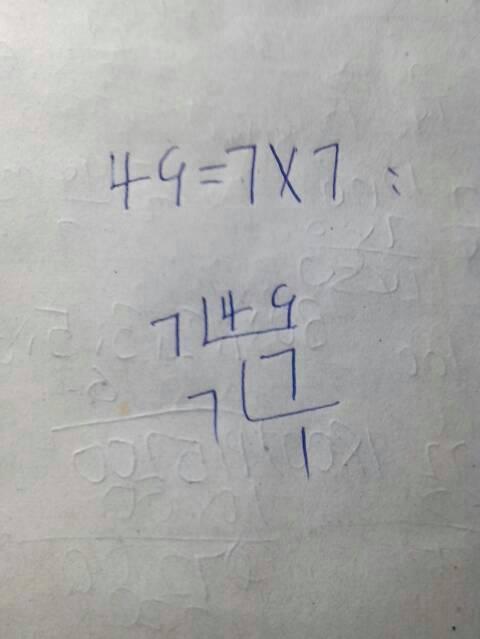 49=7X7 :
7 49
7 7
1